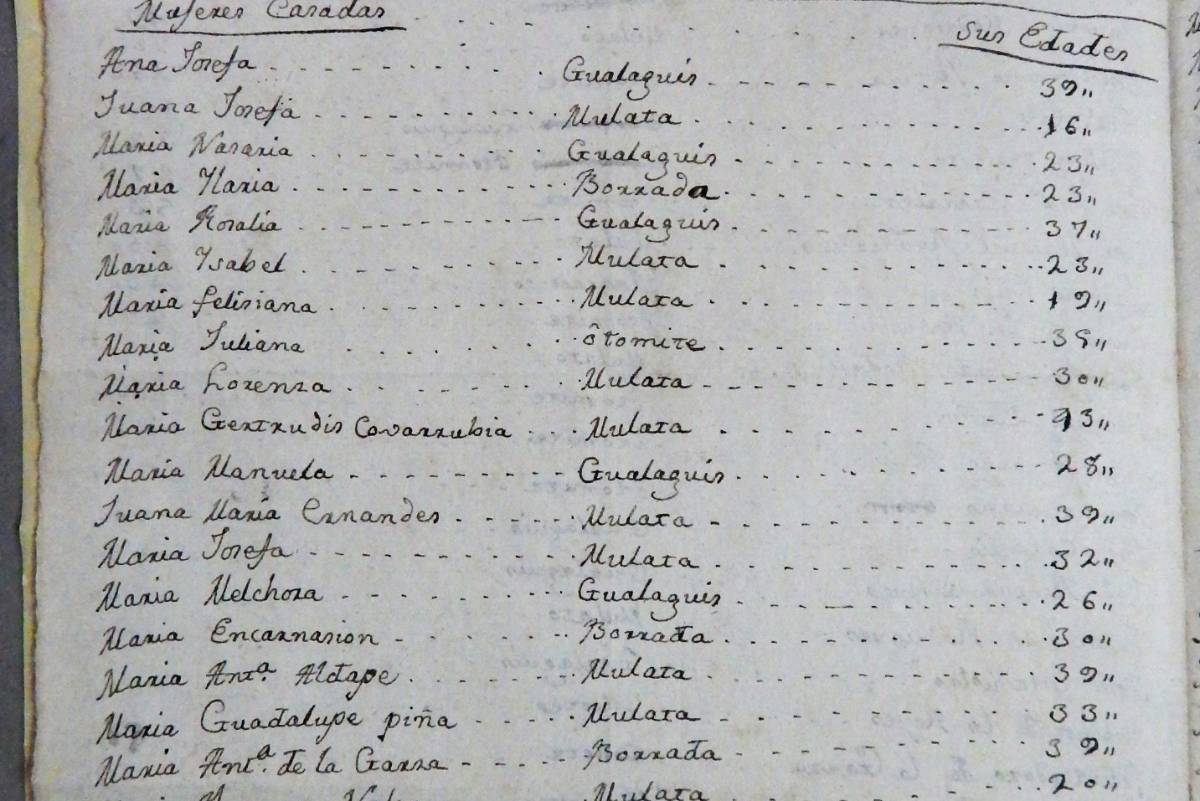 Mujeres Casadas . . . . . . . . Sus Edades
Ana Josefa - - - - - - - - - Gualaguis - - - - - - - - - 39,,
Juana Josefa - - - - - - - - - Mulata - - - - - - - - - 16,,
Maria Nasaria - - - - - - - - - Gualaguis - - - - - - - - - 23,,
Maria Ylaria - - - - - - - - - Borrada - - - - - - - - - 23,,
Maria Rosalia - - - - - - - - - Gualaguis - - - - - - - - - 37,,
Maria Ysabel - - - - - - - - - Mulata - - - - - - - - - 23,,
Maria felisiana - - - - - - - - - Mulata - - - - - - - - - 19,,
Maria Juliana - - - - - - - - - ôtomite - - - - - - - - - 38,,
Maria Lorenza - - - - - - - - - Mulata - - - - - - - - - 30,,
Maria Gertrudis Covarrubia - - - Mulata - - - - - - - - -
Maria Manuela - - - - - - - - - Gualaguis - - - - - - - - - 28,,
Juana Maria Ernandes - - - - - Mulata - - - - - - - - - 39,,
Maria Josefa - - - - - - - - - Mulata - - - - - - - - - 32,,
Maria Melchora - - - - - - - - - Gualaguis - - - - - - - - - 26,,
Maria Encarnasion - - - - - - Borrada - - - - - - - - - 30,,
Maria Antª. Aldape - - - - - - Mulata - - - - - - - - - 39,,
Maria Guadalupe piña - - - - - Mulata - - - - - - - - - 33,,
Maria Antª. de la Garza - - - - Borrada - - - - - - - - - 39,,
Mulata - - - - - - - - - 20,,